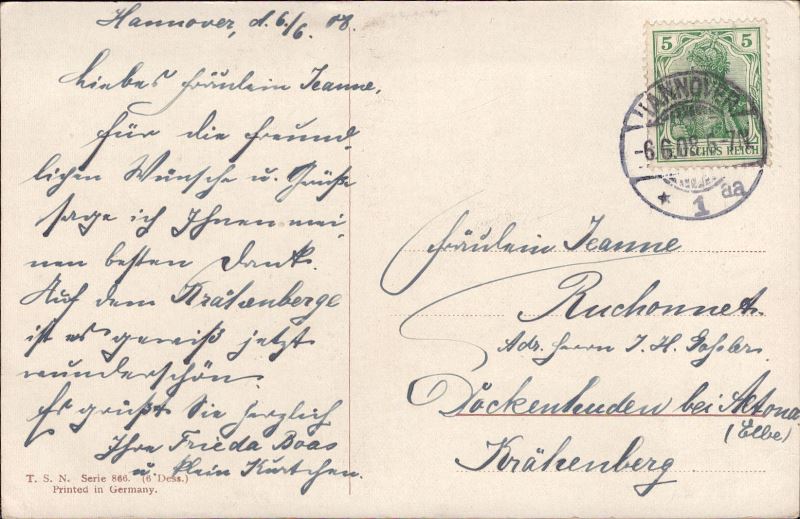 Hannover, d. 6./6. 08.
Liebes Fräulein Jeanne,
Für die freund-
lichen Wünsche u. Grüße
sage ich Ihnen mei-
nen besten Dank.
Auf dem Krähenberge
ist es gewiß jetzt
wunderschön.
Es grüßt Sie herzlich
Ihre Frieda Boas
u. klein Kurtchen.
T. S. N. Serie 866. (6 Dess.)
Printed in Germany.
5 5
DEUTSCHES REICH
HANNOVER
-6.6.08. 6-7N.
* 1 aa
Fräulein Jeanne
Ruchonnet.
Adr. Herrn J. H. Goßler.
Dockenhuden bei Altona
(Elbe)
Krähenberg